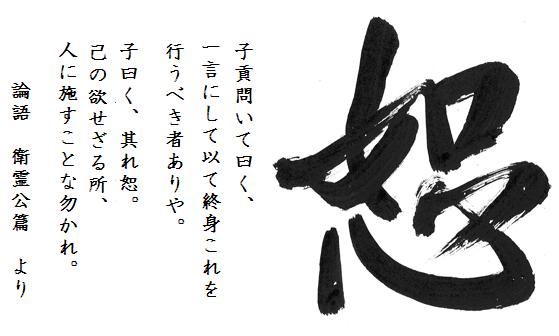 恕
子貢問いて曰く、
一言にして以て終身これを
行うべき者ありや。
子曰く、其れ恕。
己の欲せざる所、
人に施すことな勿かれ。
論語　衛霊公篇　より